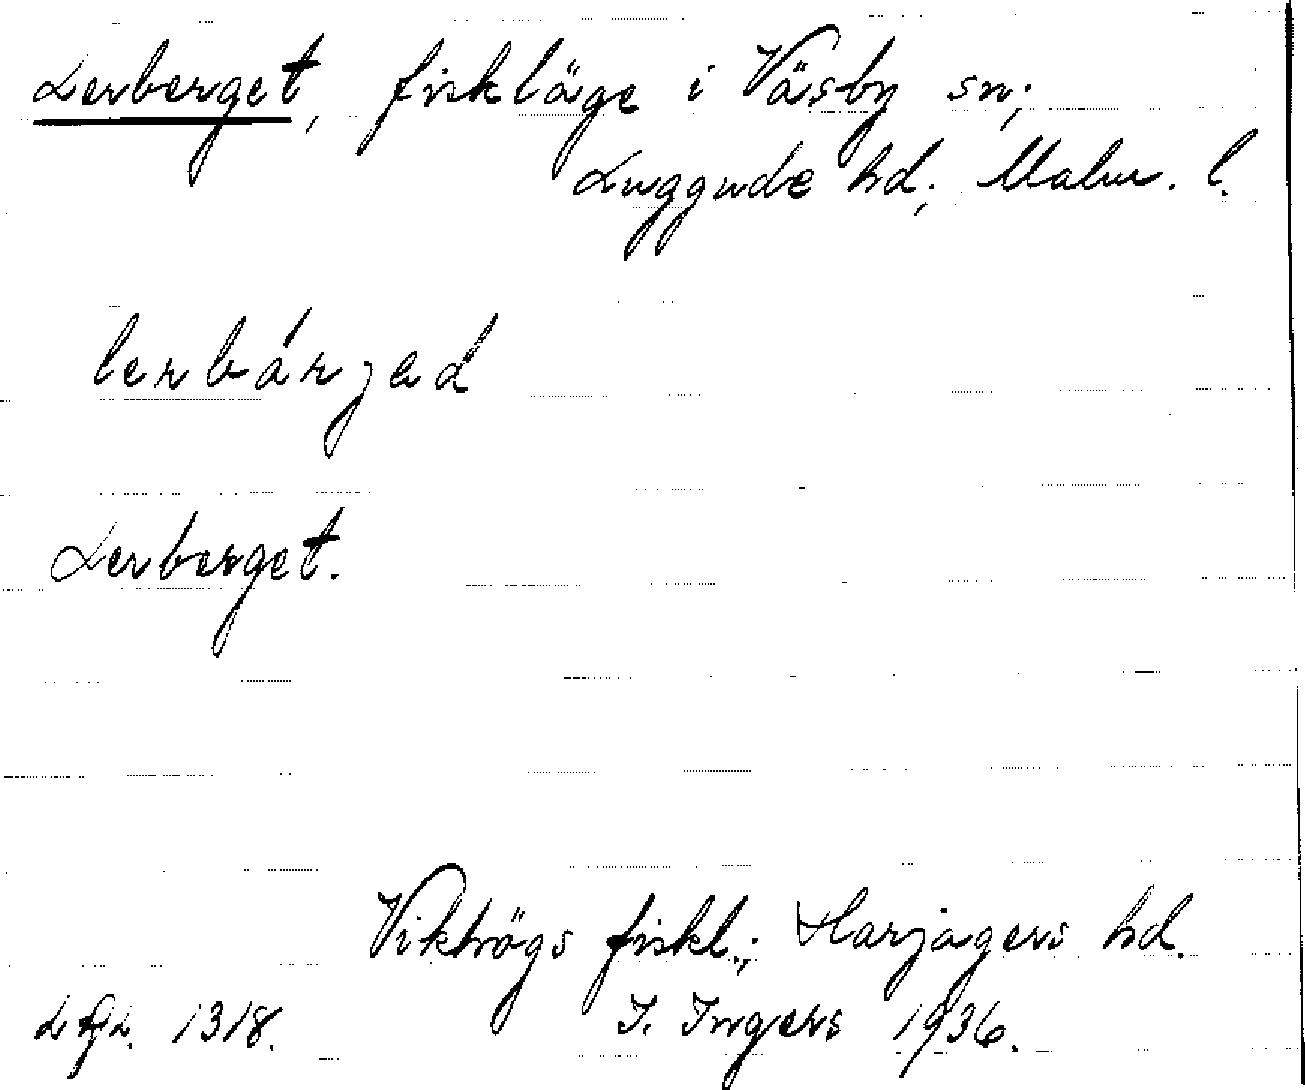 Lerberget, fiskläge i Väsby sn;
Luggude hd; Malm. l.
Lerberget.
Viktrögs fiskl.; Harjagers hd.
1318. I. Ingers 1936.